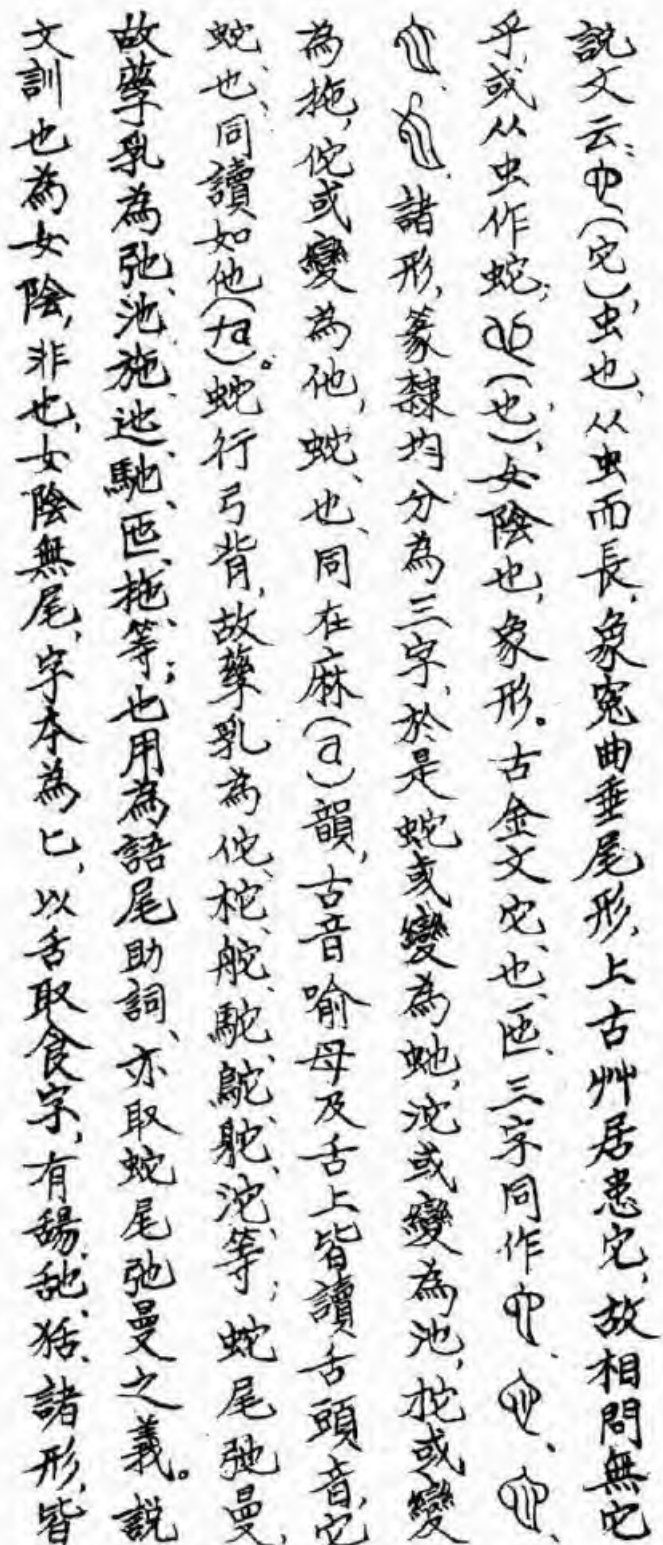 說文云：（它），虫也，从虫而長，象冤曲垂尾形，上古艸居患它，故相問無它
乎，或从虫作蛇；（也），女陰也，象形。古金文它、也、匜、三字同作
諸形，篆隸均分為三字，於是蛇或變為虵，沱或變為池，柁或變
為拖，佗或變為他，蛇、也、同在麻（a）韻，古音喻母及舌上皆讀舌頭音，它
蛇、也、同讀如他（ta）。蛇行弓背，故孳乳為佗、柁、舵、駝、鴕、躭、沱等；蛇尾弛曼，
故孳乳為弛、池、施、迆、馳、匜、拖等；也用為語尾助詞，亦取蛇尾弛曼之義。說
文訓也為女陰，非也，女陰無尾，字本為匕，以舌取食字，有舓、𦧇、狧、諸形，皆